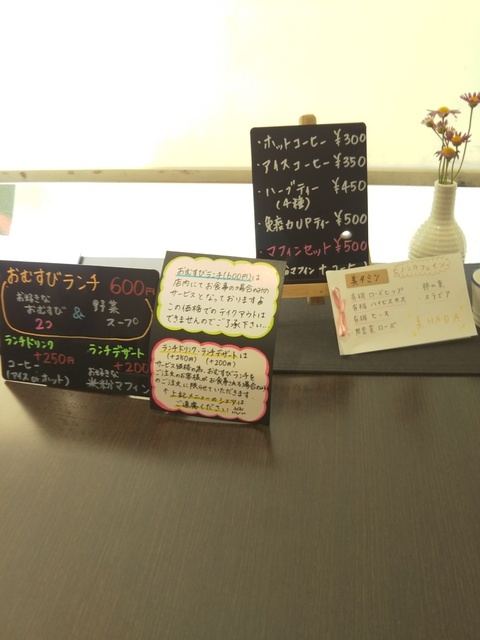 ・ホットコーヒー ¥300
・アイスコーヒー ¥350
・ハーブティー ¥450
(4種)
・免疫力UPティー ¥500
・マフィンセット ¥500
マフィン + コーヒー
おむすびランチ 600円
お好きな
おむすび
2つ
&
野菜
スープ
ランチドリンク
+250円
コーヒー
(アイス or ホット)
ランチデザート
+200
お好きな
米粉マフィン
おむすびランチ(600円)は
店内にてお食事の場合のみの
サービスとなっております。
この価格でのテイクアウトは
できませんのでご了承下さい…
ランチドリンク・ランチデザートは
(+250円) (+200円)
サービス価格の為、おむすびランチを
ご注文のお客様がお食事される場合のみ
のご注文に限らせていただきます
＊上記メニューのシェアは
ご遠慮ください
美
有機 ローズヒップ
有機 ハイビスカス
有機 ヒース
ローズ